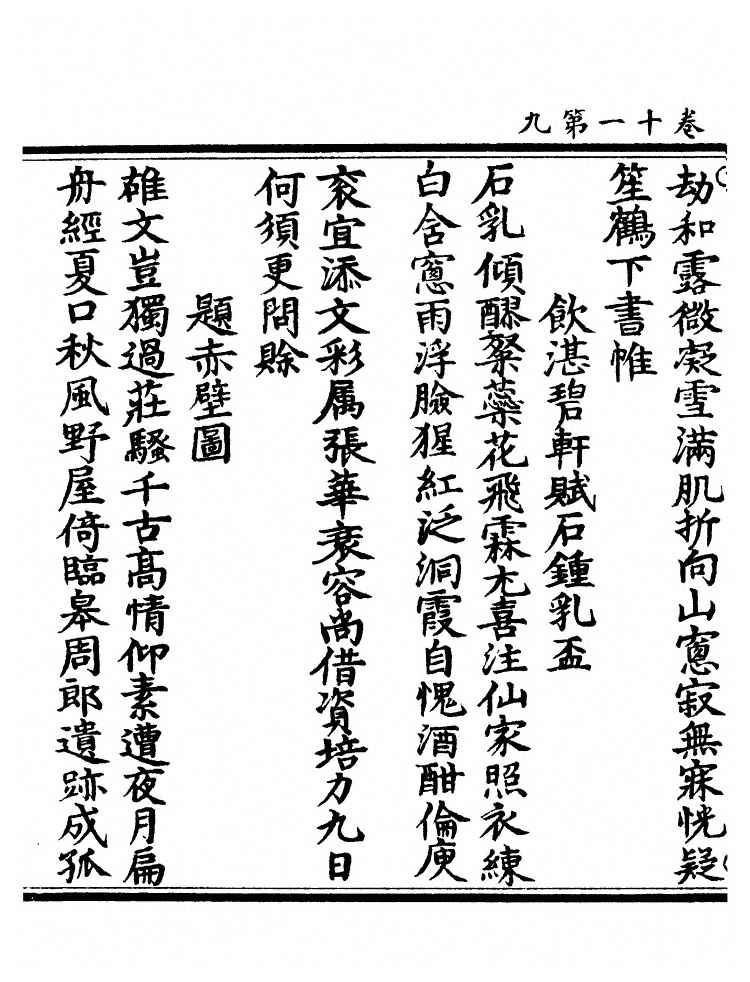 卷十一第九
劫和露微凝雪滿肌折向山窻寂無寐恍疑
笙鶴下書帷
飲湛碧軒賦石鍾乳盃
石乳傾醪粲蘂花飛霖尤喜注仙家照衣練
白含窻雨浮臉猩紅泛洞霞自愧酒酣倫庾
衮宜添文彩属張華衰容尚借資培力九日
何須更問賖
題赤壁圖
雄文豈獨過莊騷千古高情仰素遭夜月扁
舟經夏口秋風野屋倚臨皋周郎遺跡成孤